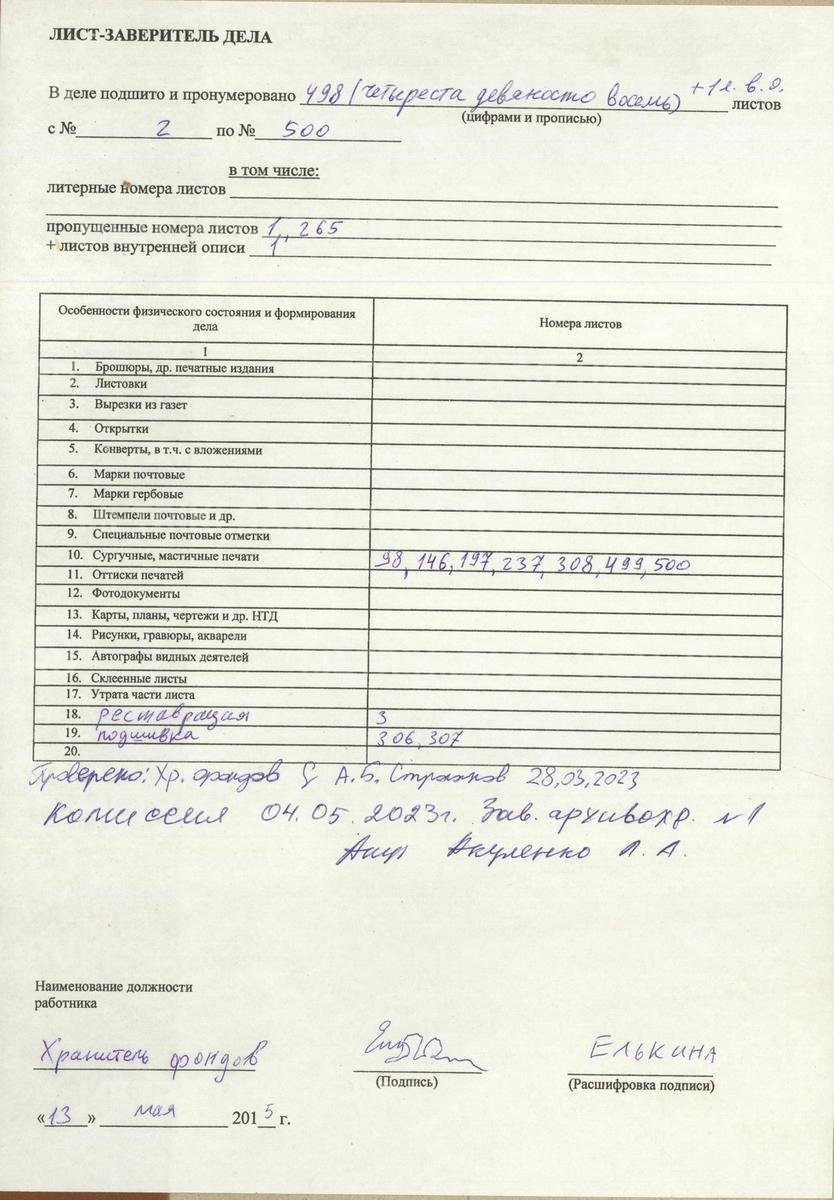 ЛИСТ-ЗАВЕРИТЕЛЬ ДЕЛА
В деле подшито и пронумеровано 498 (четыреста девяносто восемь) +1 л. в.о. листов
(цифрами и прописью)
с № 2 по № 500
в том числе:
литерные номера листов
пропущенные номера листов 1, 265
+ листов внутренней описи 1
Особенности физического состояния и формирования дела Номера листов
1 2
1. Брошюры, др. печатные издания
2. Листовки
3. Вырезки из газет
4. Открытки
5. Конверты, в т.ч. с вложениями
6. Марки почтовые
7. Марки гербовые
8. Штемпели почтовые и др.
9. Специальные почтовые отметки
10. Сургучные, мастичные печати 98, 146, 197, 237, 308, 499, 500
11. Оттиски печатей
12. Фотодокументы
13. Карты, планы, чертежи и др. НТД
14. Рисунки, гравюры, акварели
15. Автографы видных деятелей
16. Склеенные листы
17. Утрата части листа
18. реставрация 3
19. подшивка 306, 307
20.
Проверено: Хр. фондов А.Б. 28.03.2023
Комиссия 04.05.2023г. Зав. архивохр. №1
Акуленко Л.А.
Наименование должности
работника
Хранитель фондов ЕЛЬКИНА
(Подпись) (Расшифровка подписи)
«13» мая 2015 г.